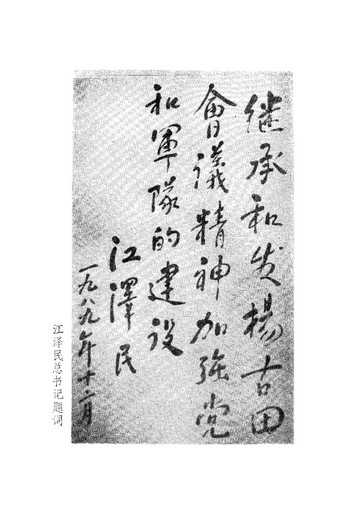 继承和发楊古田
會议精神加強党
和軍隊的建设
江澤民
一九八九年十二月
江泽民总书记题词